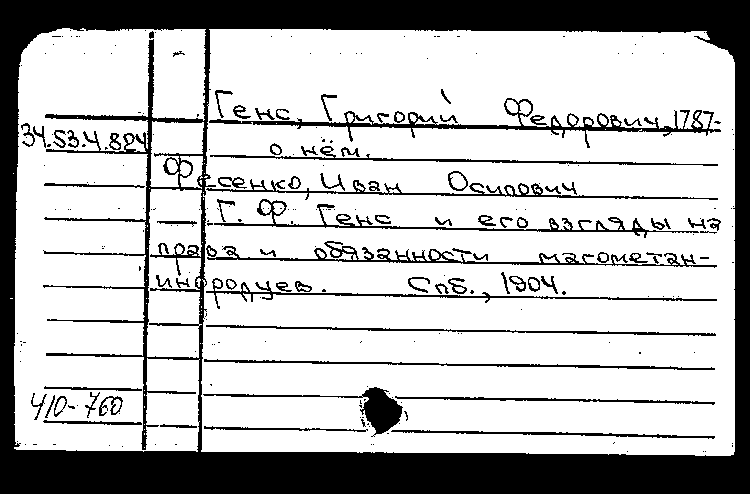 Генс, Григорий Федорович, 1787-
34.53.4.824
о нём.
Фесенко, Иван Осипович
Г. Ф. Генс и его взгляды на
права и обязанности магометан-
инородцев. Спб., 1904.
410-760